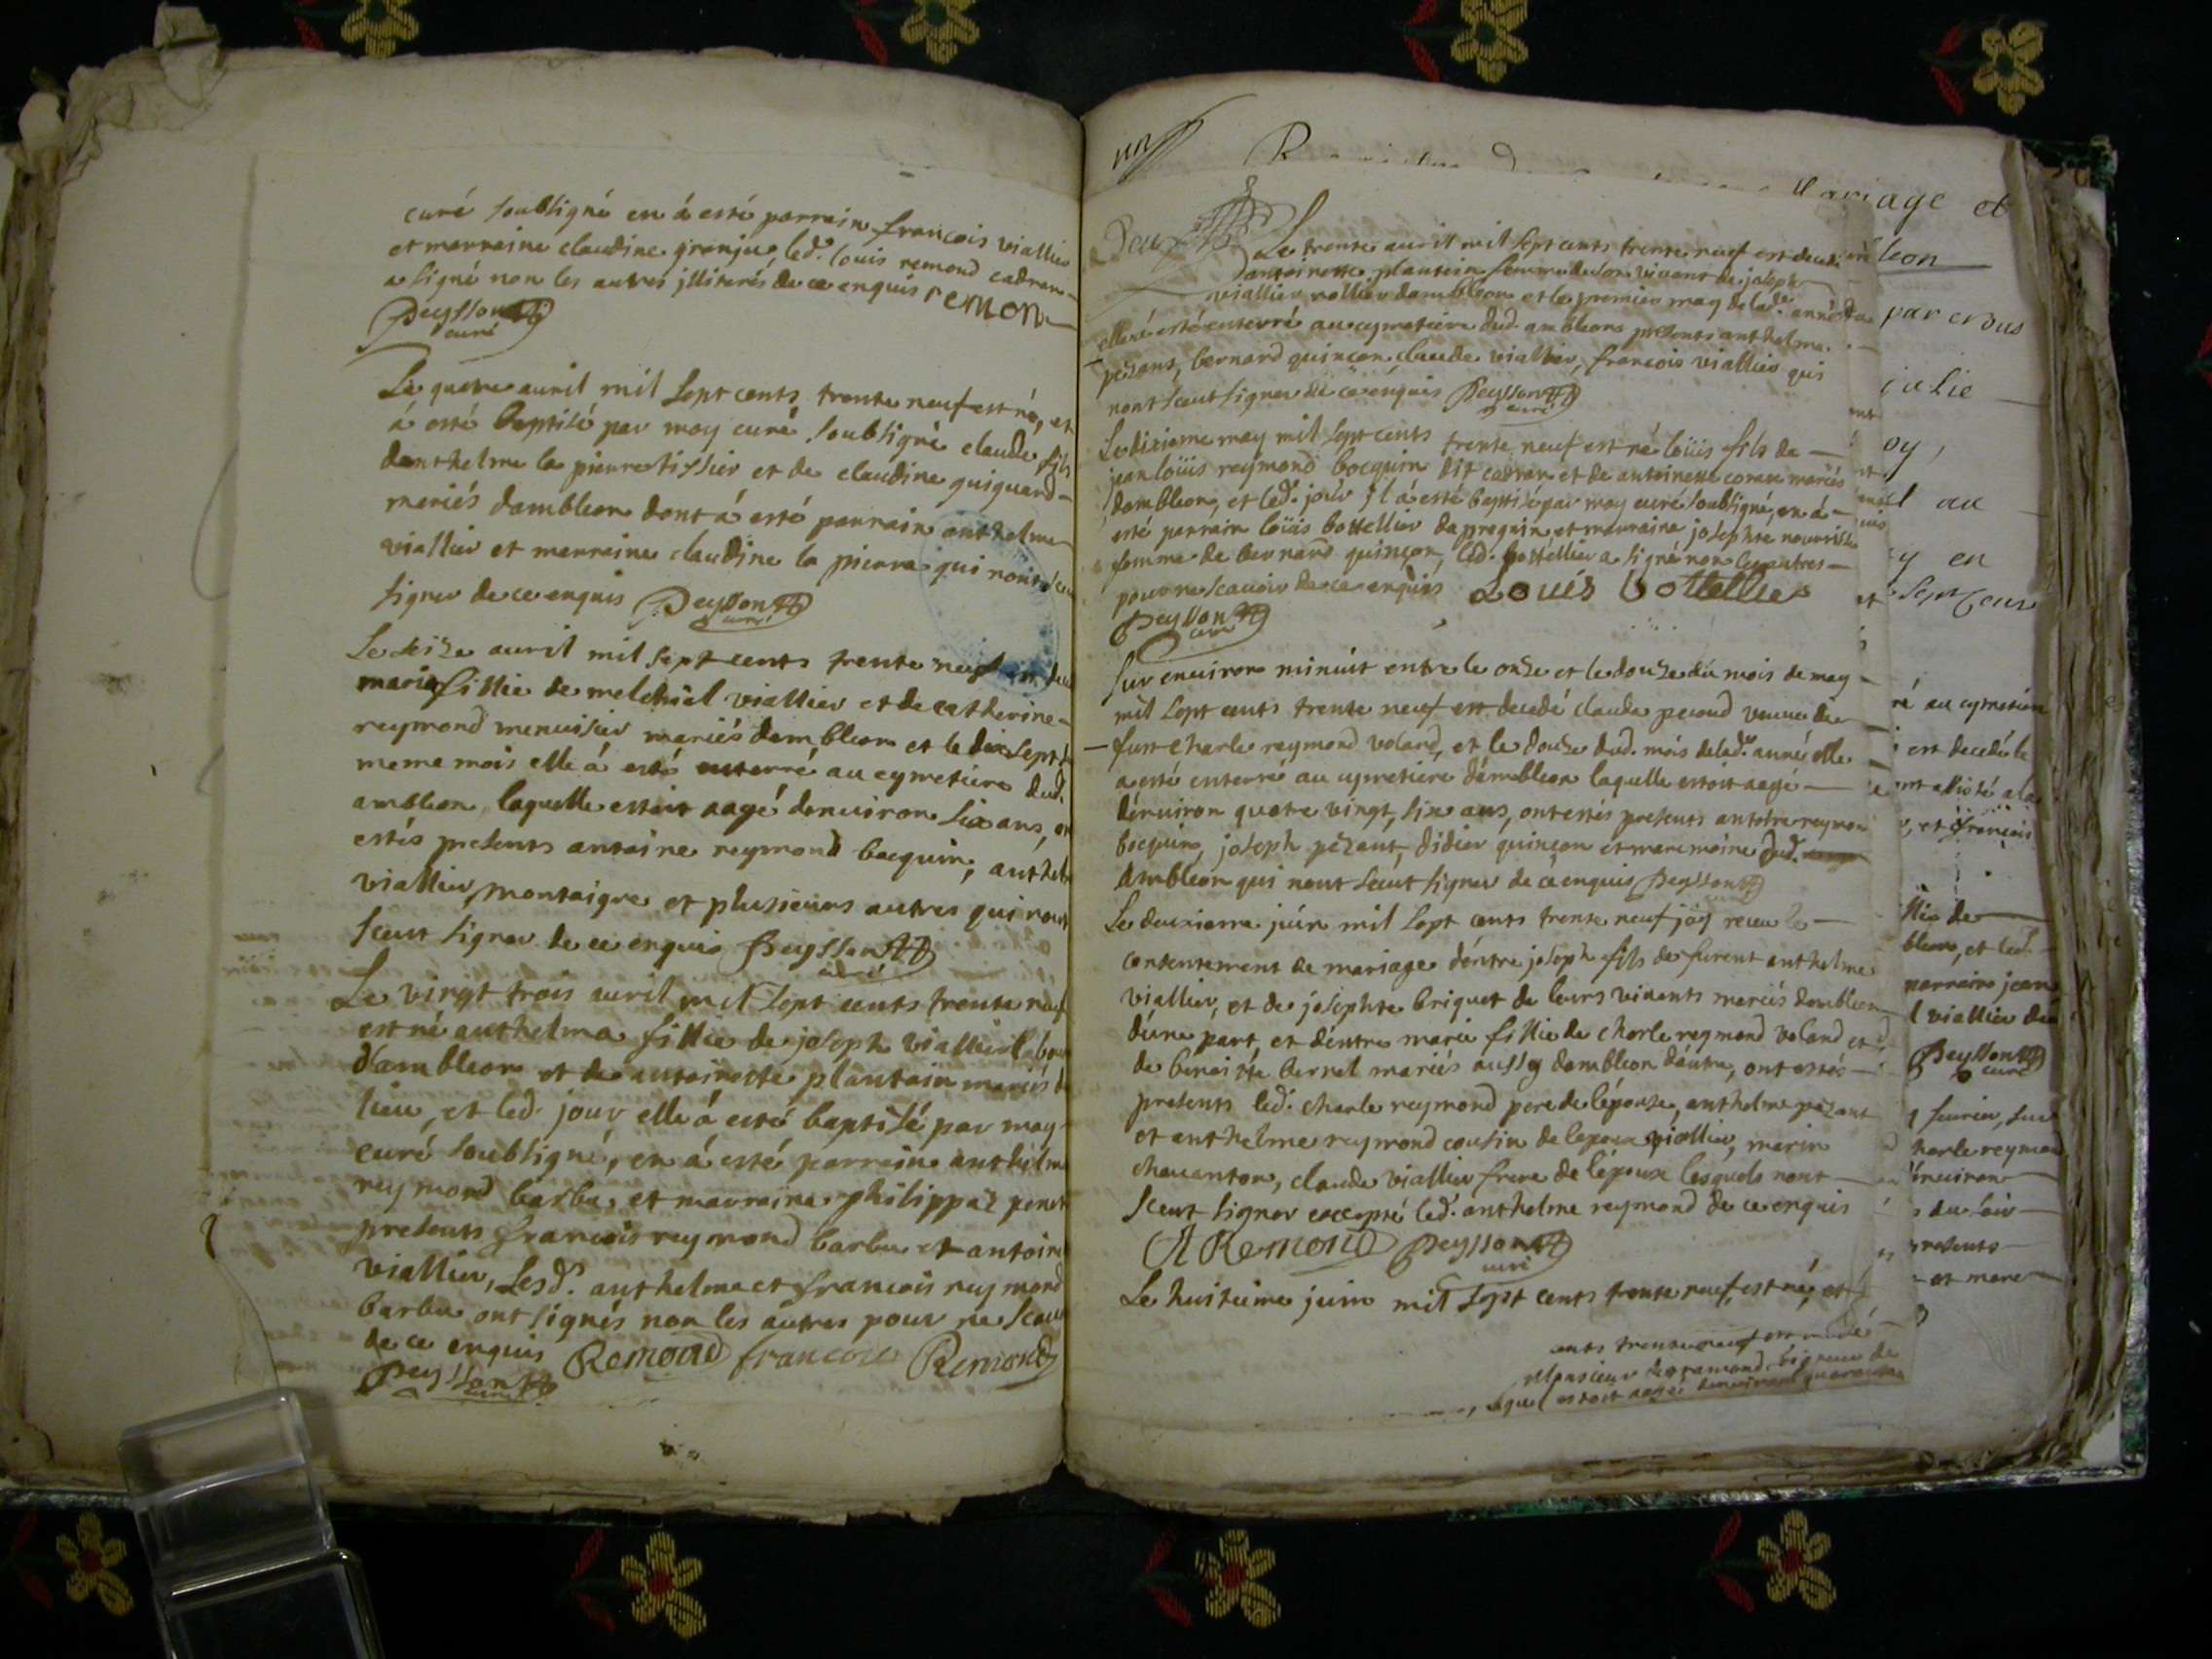 curé soubsigné en á esté parrain francois viallier
et marraine claudine granju, led. louis remond cadran
a signé non les autres jlliterés de ce enquis remon
Peysson
curé
Le quatre auril mil sept cents trente neuf est né, et
á esté baptisé par moy curé soubsigné claude fils
danthelme la pierre tissier et de claudine guiguard
mariés dambleon dont á esté parrain anthelme
viallier et marraine claudine la pierre qui nont sceu
signer de ce enquis Peysson
curé
Le seize auril mil sept cents trente neuf
marie fillie de melchiel viallier et de catherine
reymond menuisier mariés dambleon et le dix sept
meme mois elle á esté enterré au cymetiere dud.
ambleon laquelle estoit aagé denuiron six ans,
estés presents antoine reymond bocquin, anthel
viallier montaigre et plusieurs autres qui nont
sceut signer de ce enquis Peysson
curé
Le vingt trois auril mil sept cents trente neuf
est né anthelma fillie de joseph viallier
dambleon et de antoinette plantain mariés
lieu, et led. jour elle á esté baptisé par moy
curé soubsigné, en á esté parrain anthelm
reymond barbu, et marraine philippaz
presents francois reymond barbu et antoin
viallier, lesd. anthelme et francois reymond
barbu ont signés non les autres pour ne scau
de ce enquis Remond francois Remond
Peysson
curé
Mariage et
Le trente auril mil sept cents trente neuf est decedé
antoinette plantain femme de son viuant de joseph
viallier rollier dambleon et le premier may de lad. anné
elle á esté enterré au cymetiere dud. ambleon presents anthelme
pezant, bernard quinçon, claude viallier, francois viallier qui
nont sceut signer de ce enquis Peysson
curé
Le dixieme may mil sept cents trente neuf est né loüis fils de
jean loüis reymond bocquin dit cadran et de antoinette coran mariés
dambleon, et led. jour jl á esté baptisé par moy curé soubsigné, en á
esté parrain loüis bottellier de pregnin et marraine josephte
femme de bernard quinçon, led. bottellier a signé non les autres
pour ne scauoir de ce enquis Louis bottellier
Peysson
curé
Sur enuiron minuit entre le onze et le douze du mois de may
mil sept cents trente neuf est decedé clauda perond veuue de
fust charle reymond voland, et le douze dud. mois de lad. anné elle
a esté enterré au cymetiere dambleon laquelle estoit aagé
denuiron quatre vingt, six ans, ont estés presents antoine reymon
bocquin, joseph pezant, didier quinçon et marc moine dud.
ambleon qui nont sceut signer de ce enquis Peysson
Le deuxieme juin mil sept cents trente neuf jay receu le
contentement de mariage dentre joseph fils de furent anthelme
viallier, et de josephte briquet de leurs viuants mariés dambleon
dune part, et dentre marie fillie de charle reymond voland et
de benoitte bernel mariés aussy dambleon dautre, ont estés
presents led. charle reymond pere de lépouse, anthelme pezant
et anthelme reymond cousin de lepoux viallier, marin
chauanton, claude viallier frere de lépoux lesquels nont
sceut signer excepté led. anthelme reymond de ce enquis
A Remond Peysson
curé
Le huitieme juin mil sept cents trente neuf est né, et
ents trente neuf
Monsieur
estoit aagé denuiron
leon
par
oy,
au
en
sept
au cymetiere
est decedé le
et francois
llie de
bleon, et led.
parrain jean
l viallier
Peysson
curé
harle reymon
enuiron
du soir
presents
et marc